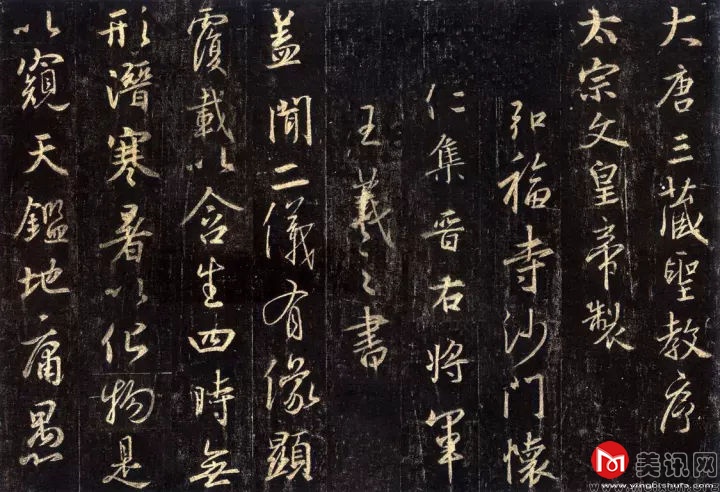 大唐三藏聖教序
太宗文皇帝製
弘福寺沙門懷
仁集晉右將軍
王羲之書
蓋聞二儀有像顯
覆載以含生四時無
形潛寒暑以化物是
以窺天鑑地庸愚
美讯网
www.yingbishufa.com